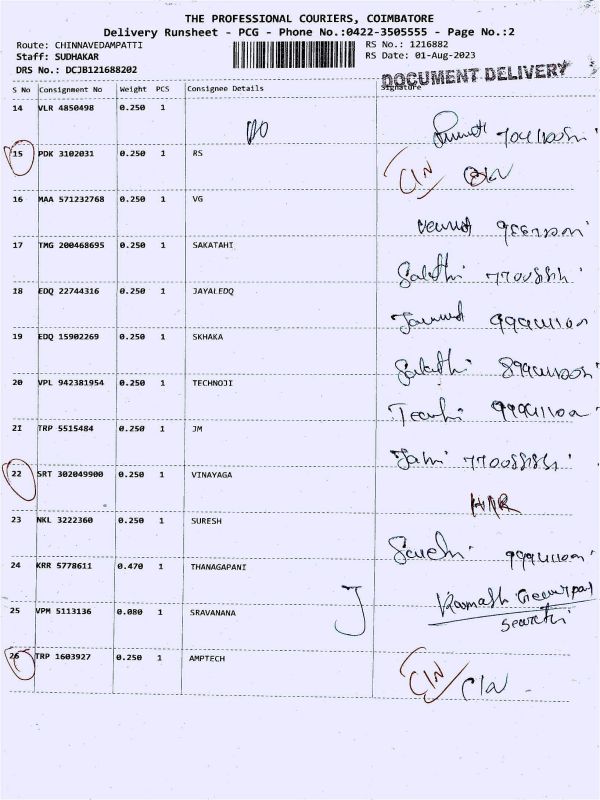 THE PROFESSIONAL COURIERS, COIMBATORE
Delivery Runsheet - PCG - Phone No.:0422-3505555 - Page No.:2
Route: CHINNAVEDAMPATTI RS No.: 1216882
Staff: SUDHAKAR RS Date: 01-Aug-2023
DRS No.: DCJB121688202
DOCUMENT DELIVERY
S No Consignment No Weight PCS Consignee Details Signature
14 VLR 4850498 0.250 1
15 PDK 3102031 0.250 1 RS CIN
16 MAA 571232768 0.250 1 VG
17 TMG 200468695 0.250 1 SAKATAHI Sakthi
18 EDQ 22744316 0.250 1 JAYALEDQ
19 EDQ 15902269 0.250 1 SKHAKA Sakthi
20 VPL 942381954 0.250 1 TECHNOJI
21 TRP 5515484 0.250 1 JM
22 SRT 302049900 0.250 1 VINAYAGA HNR
23 NKL 3222360 0.250 1 SURESH
24 KRR 5778611 0.470 1 THANAGAPANI
25 VPM 5113136 0.080 1 SRAVANANA
26 TRP 1603927 0.250 1 AMPTECH CIN